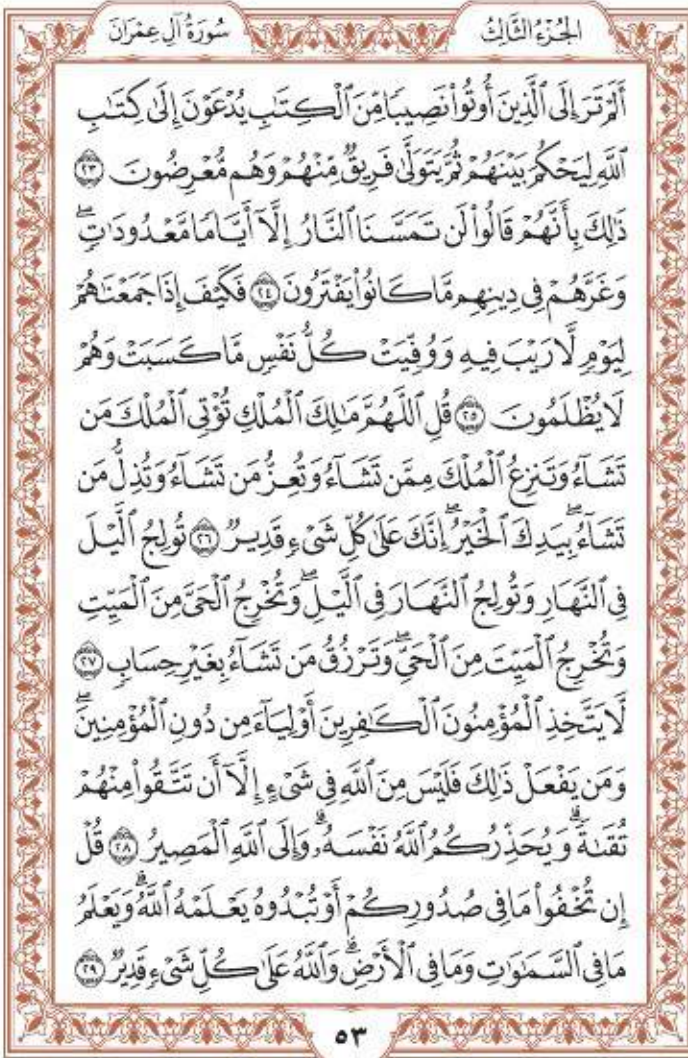 سُورَةُ آلِ عِمۡرَانَ
الجُزۡءُ الثَّالِثُ
أَلَمۡ تَرَ إِلَى ٱلَّذِينَ أُوتُواْ نَصِيبٗا مِّنَ ٱلۡكِتَٰبِ يُدۡعَوۡنَ إِلَىٰ كِتَٰبِ
ٱللَّهِ لِيَحۡكُمَ بَيۡنَهُمۡ ثُمَّ يَتَوَلَّىٰ فَرِيقٞ مِّنۡهُمۡ وَهُم مُّعۡرِضُونَ ٢٣
ذَٰلِكَ بِأَنَّهُمۡ قَالُواْ لَن تَمَسَّنَا ٱلنَّارُ إِلَّآ أَيَّامٗا مَّعۡدُودَٰتٖۖ
وَغَرَّهُمۡ فِي دِينِهِم مَّا كَانُواْ يَفۡتَرُونَ ٢٤ فَكَيۡفَ إِذَا جَمَعۡنَٰهُمۡ
لِيَوۡمٖ لَّا رَيۡبَ فِيهِ وَوُفِّيَتۡ كُلُّ نَفۡسٖ مَّا كَسَبَتۡ وَهُمۡ
لَا يُظۡلَمُونَ ٢٥ قُلِ ٱللَّهُمَّ مَٰلِكَ ٱلۡمُلۡكِ تُؤۡتِي ٱلۡمُلۡكَ مَن
تَشَآءُ وَتَنزِعُ ٱلۡمُلۡكَ مِمَّن تَشَآءُ وَتُعِزُّ مَن تَشَآءُ وَتُذِلُّ مَن
تَشَآءُۖ بِيَدِكَ ٱلۡخَيۡرُۖ إِنَّكَ عَلَىٰ كُلِّ شَيۡءٖ قَدِيرٞ ٢٦ تُولِجُ ٱلَّيۡلَ
فِي ٱلنَّهَارِ وَتُولِجُ ٱلنَّهَارَ فِي ٱلَّيۡلِۖ وَتُخۡرِجُ ٱلۡحَيَّ مِنَ ٱلۡمَيِّتِ
وَتُخۡرِجُ ٱلۡمَيِّتَ مِنَ ٱلۡحَيِّۖ وَتَرۡزُقُ مَن تَشَآءُ بِغَيۡرِ حِسَابٖ ٢٧
لَّا يَتَّخِذِ ٱلۡمُؤۡمِنُونَ ٱلۡكَٰفِرِينَ أَوۡلِيَآءَ مِن دُونِ ٱلۡمُؤۡمِنِينَۖ
وَمَن يَفۡعَلۡ ذَٰلِكَ فَلَيۡسَ مِنَ ٱللَّهِ فِي شَيۡءٍ إِلَّآ أَن تَتَّقُواْ مِنۡهُمۡ
تُقَىٰةٗۗ وَيُحَذِّرُكُمُ ٱللَّهُ نَفۡسَهُۥۗ وَإِلَى ٱللَّهِ ٱلۡمَصِيرُ ٢٨ قُلۡ
إِن تُخۡفُواْ مَا فِي صُدُورِكُمۡ أَوۡ تُبۡدُوهُ يَعۡلَمۡهُ ٱللَّهُۗ وَيَعۡلَمُ
مَا فِي ٱلسَّمَٰوَٰتِ وَمَا فِي ٱلۡأَرۡضِۗ وَٱللَّهُ عَلَىٰ كُلِّ شَيۡءٖ قَدِيرٞ ٢٩
٥٣